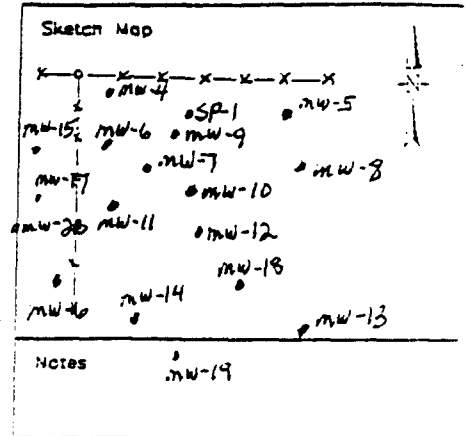 Sketch Map
N
mw-4
SP-1
mw-5
mw-15
mw-6
mw-9
mw-7
mw-8
mw-17
mw-10
mw-11
mw-20
mw-12
mw-18
mw-16
mw-14
mw-13
Notes
mw-19